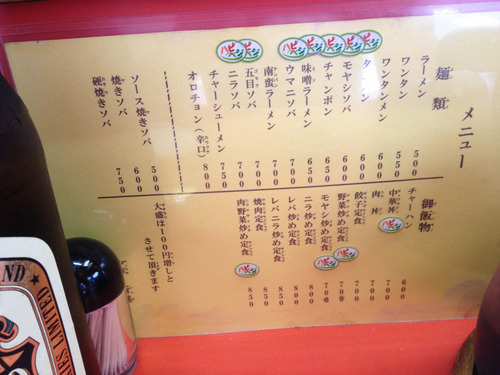 メニュー
麺類
ラーメン 500
ワンタン 550
ワンタンメン 600
タンメン 600
モヤシソバ 600
チャンポン 650
味噌ラーメン 650
ウマニソバ 700
南蛮ラーメン 700
五目ソバ 700
ニラソバ 700
チャーシューメン 750
オロチョン(辛口) 800
ソース焼きソバ 500
焼きソバ 600
硬焼きソバ 750
御飯物
チャーハン 600
中華丼 700
肉丼 700
餃子定食 700
野菜炒め定食 700
モヤシ炒め定食 700
ニラ炒め定食 800
レバ炒め定食 850
レバニラ炒め定食 850
焼肉定食 850
肉野菜炒め定食 850
大盛は100円増しと
させて頂きます
LIMITED